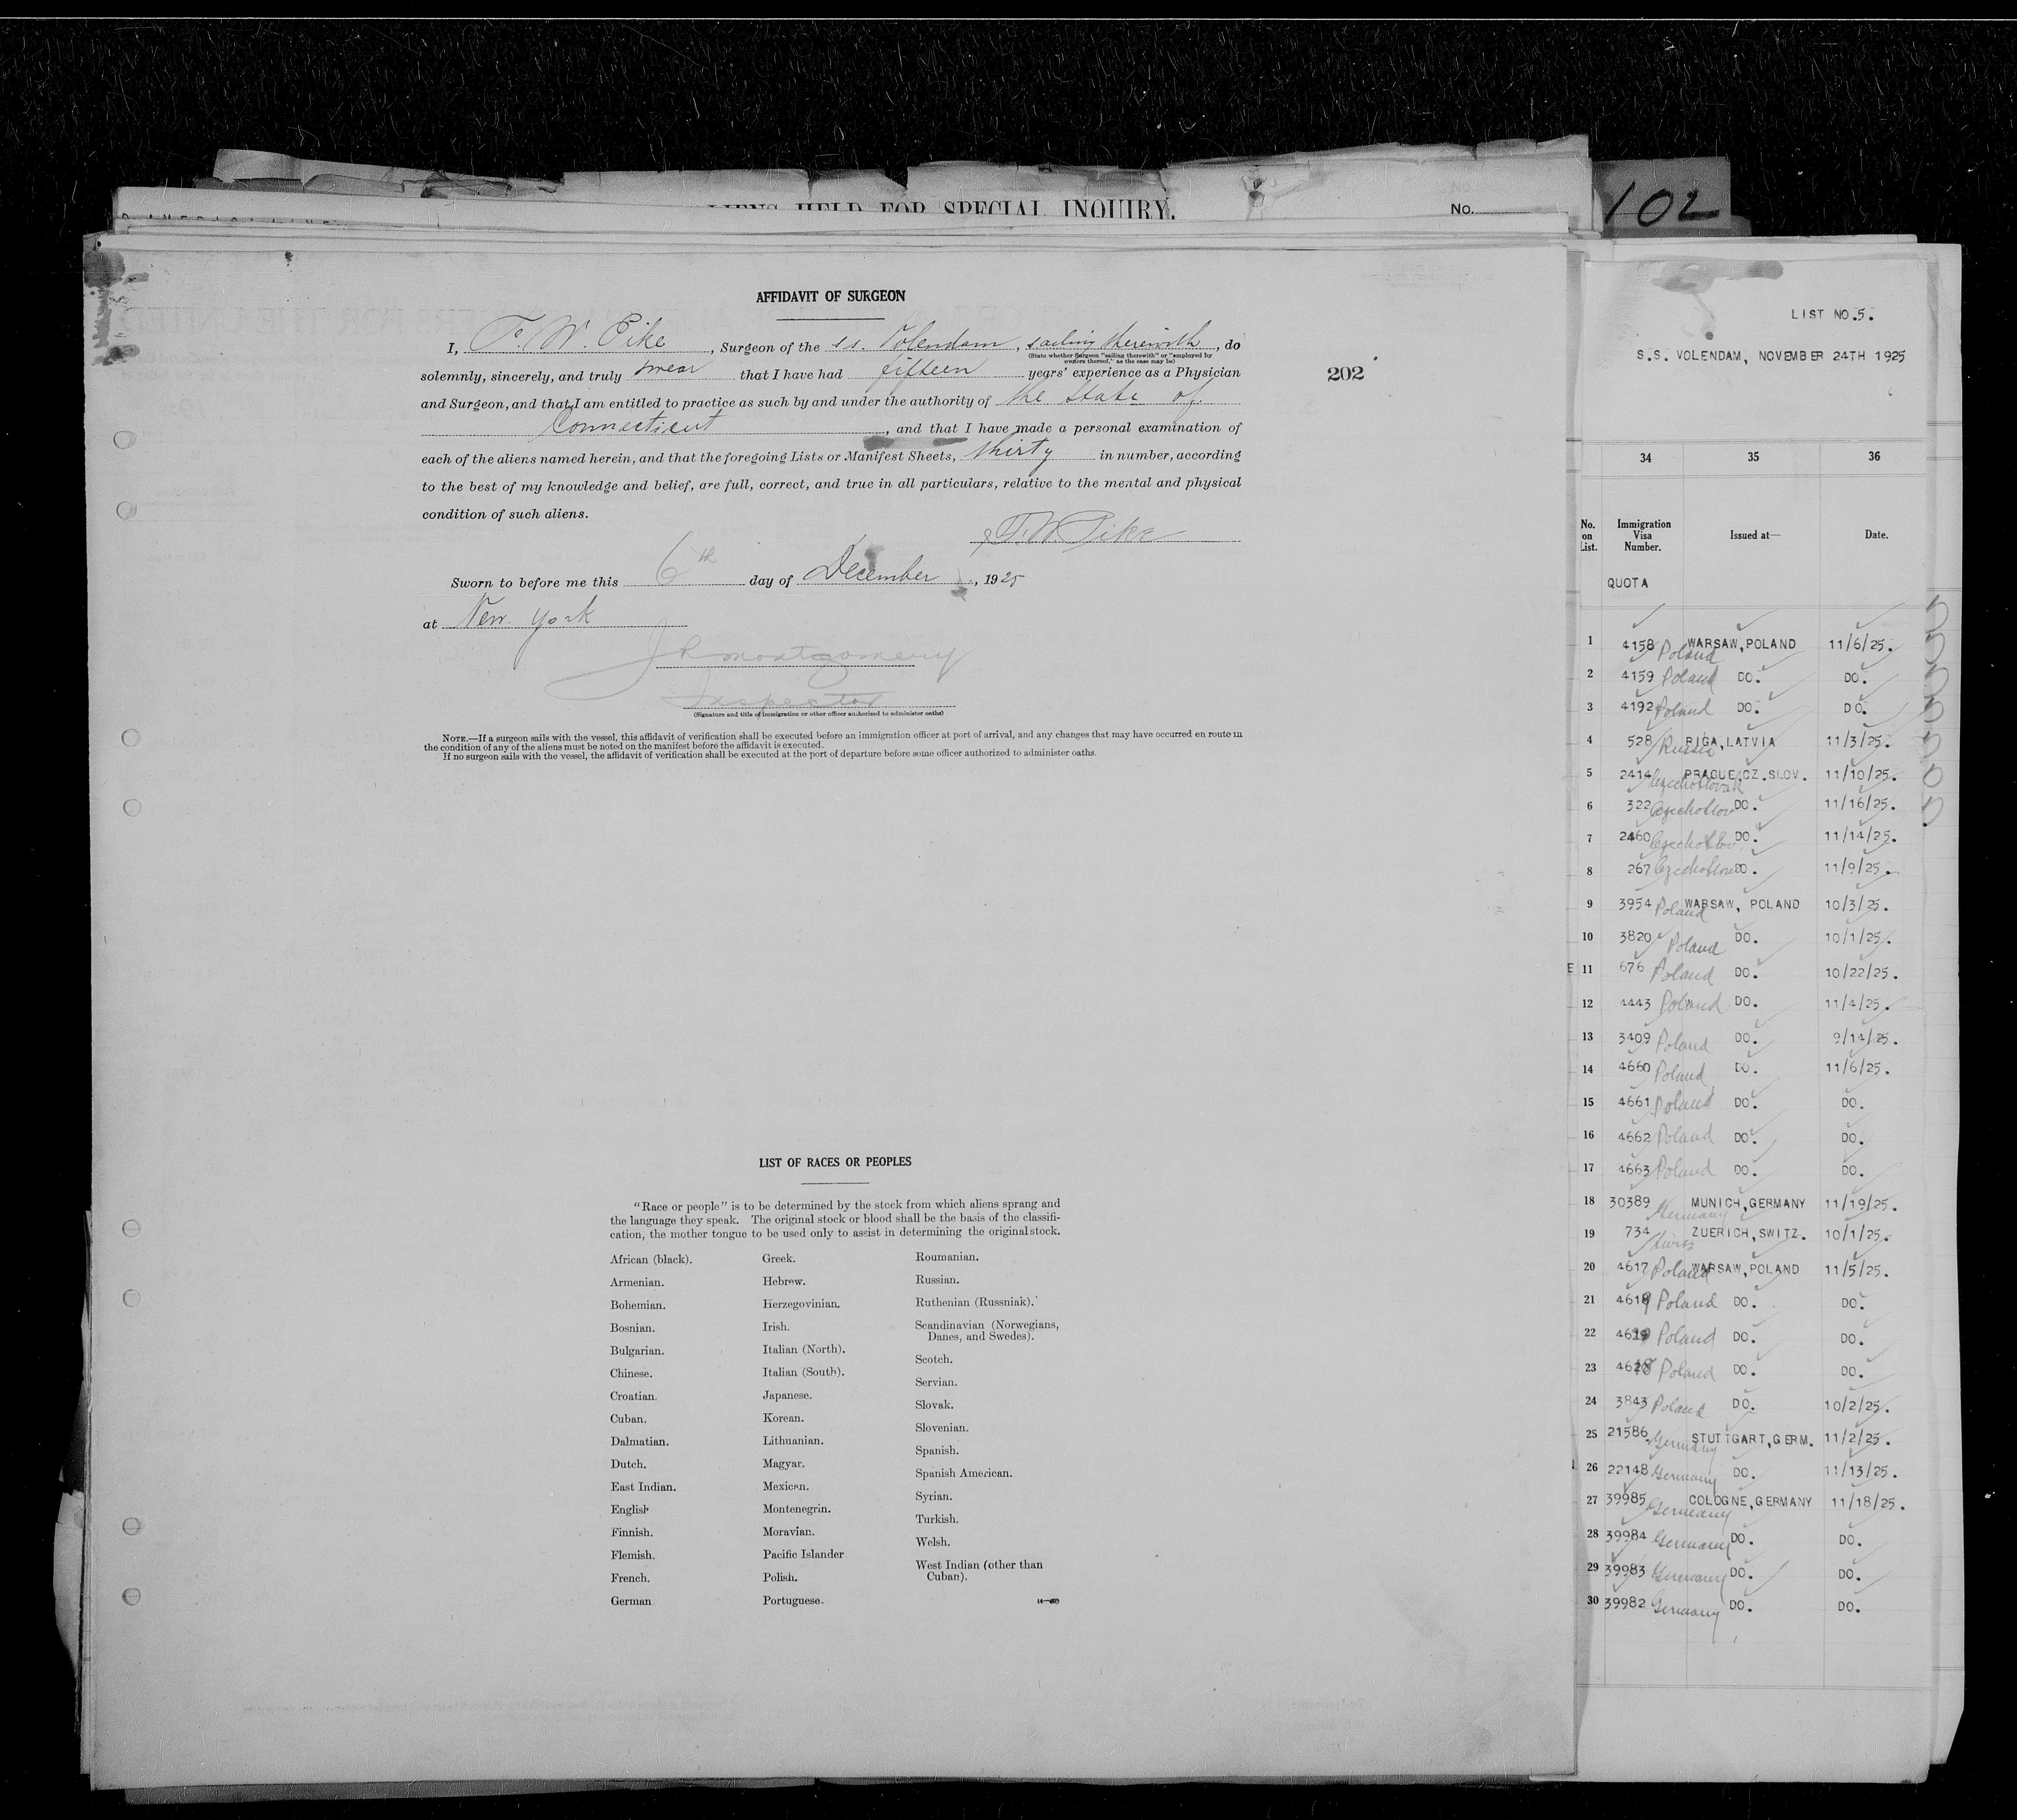 HELD FOR SPECIAL INQUIRY.
No.
102
AFFIDAVIT OF SURGEON
I, F. W. Pike, Surgeon of the s.s. Volendam, sailing therewith, do
(State whether Surgeon "sailing therewith" or "employed by
owners thereof," as the case may be)
solemnly, sincerely, and truly swear that I have had fifteen years' experience as a Physician
and Surgeon, and that I am entitled to practice as such by and under the authority of the State of
Connecticut, and that I have made a personal examination of
each of the aliens named herein, and that the foregoing Lists or Manifest Sheets, thirty in number, according
to the best of my knowledge and belief, are full, correct, and true in all particulars, relative to the mental and physical
condition of such aliens.
F. W. Pike
Sworn to before me this 6th day of December, 1925
at New York
J R Montgomery
Inspector
(Signature and title of immigration or other officer authorized to administer oaths)
NOTE.—If a surgeon sails with the vessel, this affidavit of verification shall be executed before an immigration officer at port of arrival, and any changes that may have occurred en route in
the condition of any of the aliens must be noted on the manifest before the affidavit is executed.
If no surgeon sails with the vessel, the affidavit of verification shall be executed at the port of departure before some officer authorized to administer oaths.
202
LIST OF RACES OR PEOPLES
"Race or people" is to be determined by the stock from which aliens sprang and
the language they speak. The original stock or blood shall be the basis of the classifi-
cation, the mother tongue to be used only to assist in determining the original stock.
African (black).
Armenian.
Bohemian.
Bosnian.
Bulgarian.
Chinese.
Croatian.
Cuban.
Dalmatian.
Dutch.
East Indian.
English
Finnish.
Flemish.
French.
German
Greek.
Hebrew.
Herzegovinian.
Irish.
Italian (North).
Italian (South).
Japanese.
Korean.
Lithuanian.
Magyar.
Mexican.
Montenegrin.
Moravian.
Pacific Islander
Polish.
Portuguese.
Roumanian.
Russian.
Ruthenian (Russniak).
Scandinavian (Norwegians,
Danes, and Swedes).
Scotch.
Servian.
Slovak.
Slovenian.
Spanish.
Spanish American.
Syrian.
Turkish.
Welsh.
West Indian (other than
Cuban).
LIST NO.5.
S.S. VOLENDAM, NOVEMBER 24TH 1925
34 35 36
No. on List. Immigration Visa Number. Issued at— Date.
QUOTA
1 4158 Poland WARSAW, POLAND 11/6/25.
2 4159 Poland DO. DO.
3 4192 Poland DO. DO.
4 528 Russia RIGA, LATVIA 11/3/25.
5 2414 Czechoslovak PRAGUE, CZ.SLOV. 11/10/25.
6 322 Czechoslov DO. 11/16/25.
7 2460 Czechoslov DO. 11/14/25.
8 267 Czechoslov DO. 11/9/25.
9 3954 Poland WARSAW, POLAND 10/3/25.
10 3820 Poland DO. 10/1/25.
E 11 676 Poland DO. 10/22/25.
12 4443 Poland DO. 11/4/25.
13 3409 Poland DO. 9/14/25.
14 4660 Poland DO. 11/6/25.
15 4661 Poland DO. DO.
16 4662 Poland DO. DO.
17 4663 Poland DO. DO.
18 30389 Germany MUNICH, GERMANY 11/19/25.
19 734 Swiss ZUERICH, SWITZ. 10/1/25.
20 4617 Poland WARSAW, POLAND 11/5/25.
21 Poland DO. DO.
22 Poland DO. DO.
23 Poland DO. DO.
24 3843 Poland DO. 10/2/25.
25 21586 Germany STUTTGART, GERM. 11/2/25.
26 22148 Germany DO. 11/13/25.
27 39985 Germany COLOGNE, GERMANY 11/18/25.
28 39984 Germany DO. DO.
29 39983 Germany DO. DO.
30 39982 Germany DO. DO.